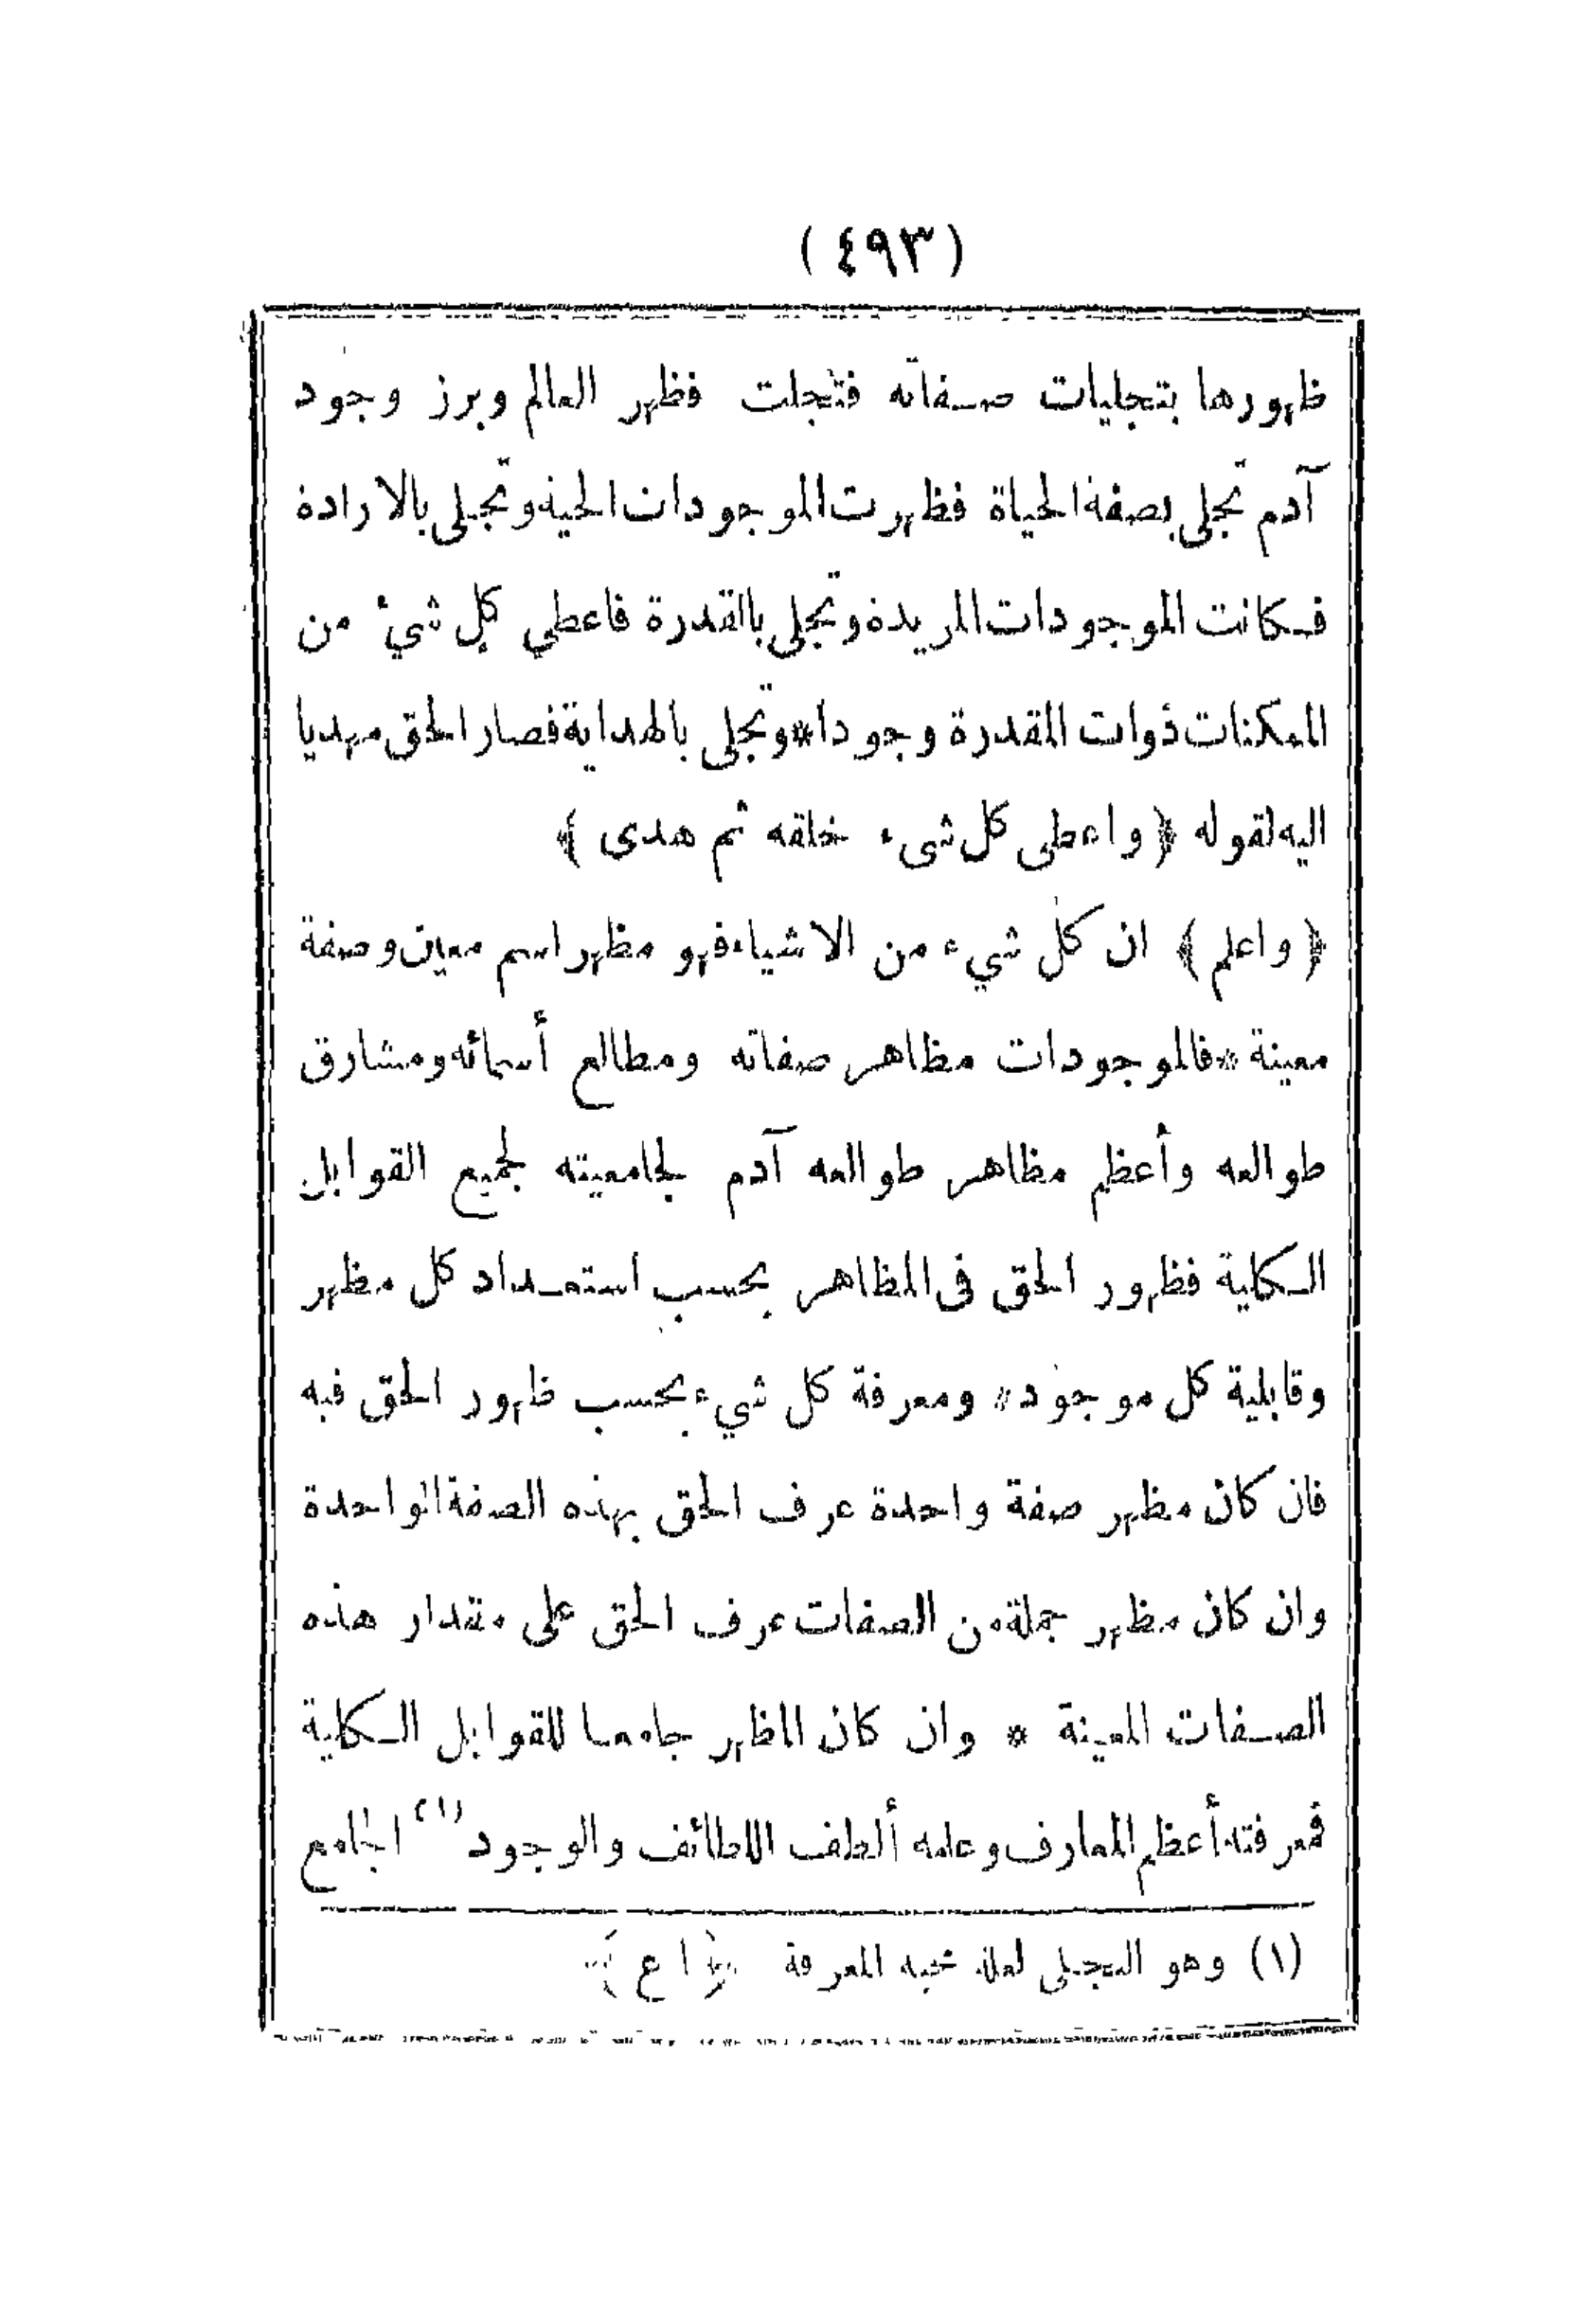 (٤٩٣)
ظهورها بتجليات صفاته فتجلت فظهر العالم وبرز وجود
آدم تجلى بصفة الحياة فظهرت الموجودات الحية وتجلى بالارادة
فكانت الموجودات المريدة وتجلى بالقدرة فاعطي كل شيء من
الممكنات ذوات المقدرة وجودا * وتجلى بالهداية فصار الحق مهديا
اليه لقوله ﴿ واعطى كل شىء خلقه ثم هدى ﴾
﴿ واعلم ﴾ ان كل شيء من الاشياء فهو مظهر اسم معين وصفة
معينة * فالموجودات مظاهر صفاته ومطالع أسمائه ومشارق
طوالعه وأعظم مظاهر طوالعه آدم لجامعيته لجميع القوابل
الكلية فظهور الحق فى المظاهر بحسب استعداد كل مظهر
وقابلية كل موجود * ومعرفة كل شيء بحسب ظهور الحق فيه
فان كان مظهر صفة واحدة عرف الحق بهذه الصفة الواحدة
وان كان مظهر جملة من الصفات عرف الحق على مقدار هذه
الصفات المعينة * وان كان المظهر جامعا للقوابل الكلية
فمعرفته أعظم المعارف وعلمه ألطف اللطائف والوجود (١) الجامع
(١) وهو التجلى لعلة محبة المعرفة ﴿ ا ع ﴾